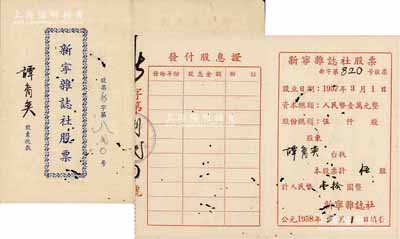 新寧雜誌社股票
譚裔奕
股东收执
股票新字第八二〇号
發付股息證
發給年份
股息金額
附註
字第
号
新寧雜誌社股票
新字第820号股票
設立日期：1957年3月1日
資本總額：人民幣壹萬元整
股份總額：伍仟股
股東
譚裔奕
台執
本股票計 伍 股
計人民幣壹拾圓整
新寧雜誌社
公元1958年 月1日填发